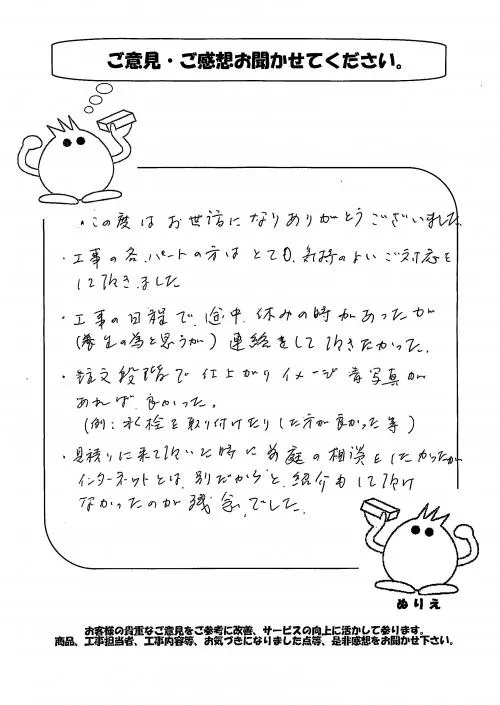 ご意見・ご感想お聞かせてください。
・この度はお世話になりありがとうございました
・工事の各パートの方はとても気持のよいご対応を
して頂きました
・工事の日程で、途中、休みの時があったが
(養生の為と思うが)連絡をして頂きたかった。
・注文段階で仕上がりイメージ青写真が
あれば良かった。
(例:水栓を取り付けたりした方が良かった等)
・見積りに来て頂いた時に前庭の相談をしたかったが
インターネットとは別だからと、紹介もして頂け
なかったのが残念でした。
ぬりえ
お客様の貴重なご意見をご参考に改善、サービスの向上に活かして参ります。
商品、工事担当者、工事内容等、お気づきになりました点等、是非感想をお聞かせ下さい。